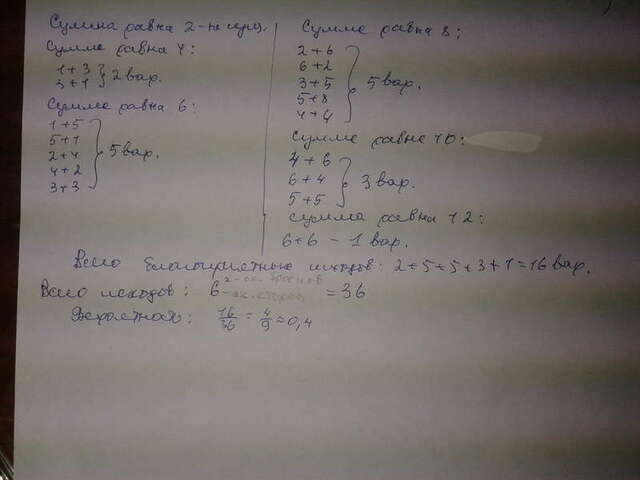 Сумма равна 2 - не
Сумма равна 4:
1+3
3+1 } 2 вар.
Сумма равна 6:
1+5
5+1
2+4 } 5 вар.
4+2
3+3
Сумма равна 8:
2+6
6+2
3+5 } 5 вар.
5+8
4+4
Сумма равна 10:
4+6
6+4 } 3 вар.
5+5
Сумма равна 12:
6+6 - 1 вар.
Всего благоприятных исходов: 2+5+5+3+1=16 вар.
Всего исходов: 6² = 36
Вероятность: 16/36 = 4/9 ≈ 0,4